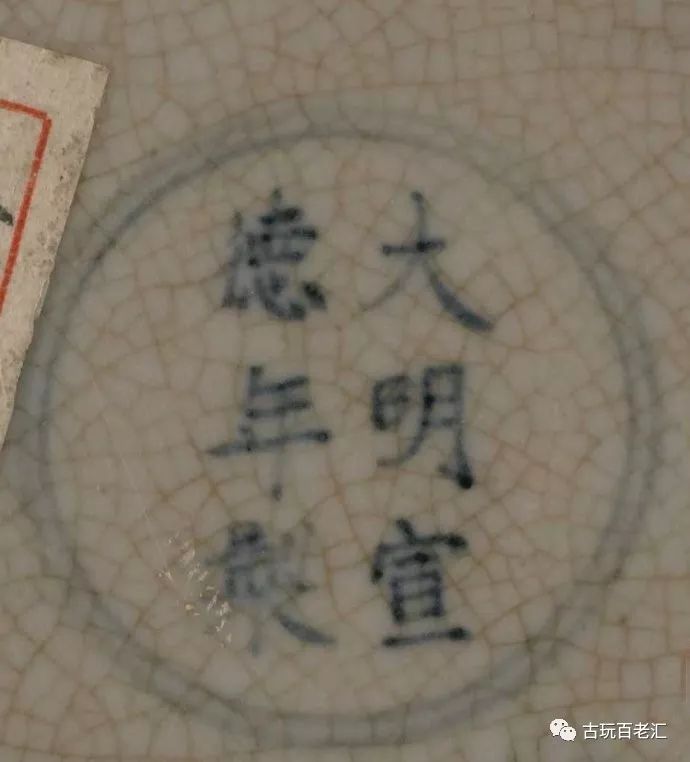 大明宣
德年製
古玩百老汇